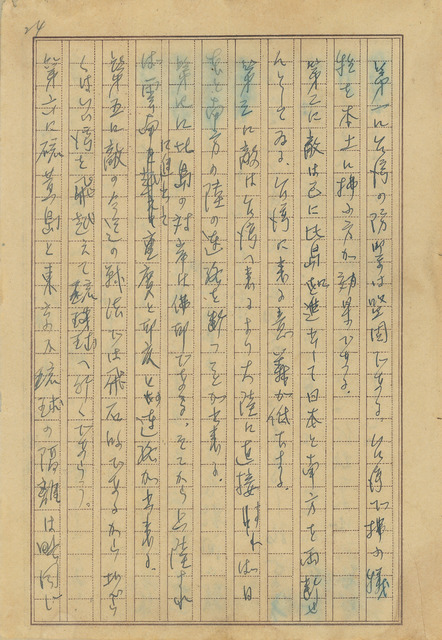 24
第一に台湾の防禦は堅固である、台湾で拂ふ犠
牲を本土に拂ふ方が効果である。
第二に敵は已に比島に進出して日本と南方を両断せ
んとしてゐる。台湾に来る意義が低下する。
第三に敵は台湾へ来るより大陸に直接すれば日
本と南方の陸の連絡を断つことが出来る。
第四に比島の対岸は佛印である。そこから上陸すれ
ば雲南に進出して重慶と印度との連絡が出来る。
第五に敵の今迄の戦法では飛石的であるから
台湾を飛越えて琉球へ行くであらう。
第六に硫黄島と東京、琉球の隔離は略同じ